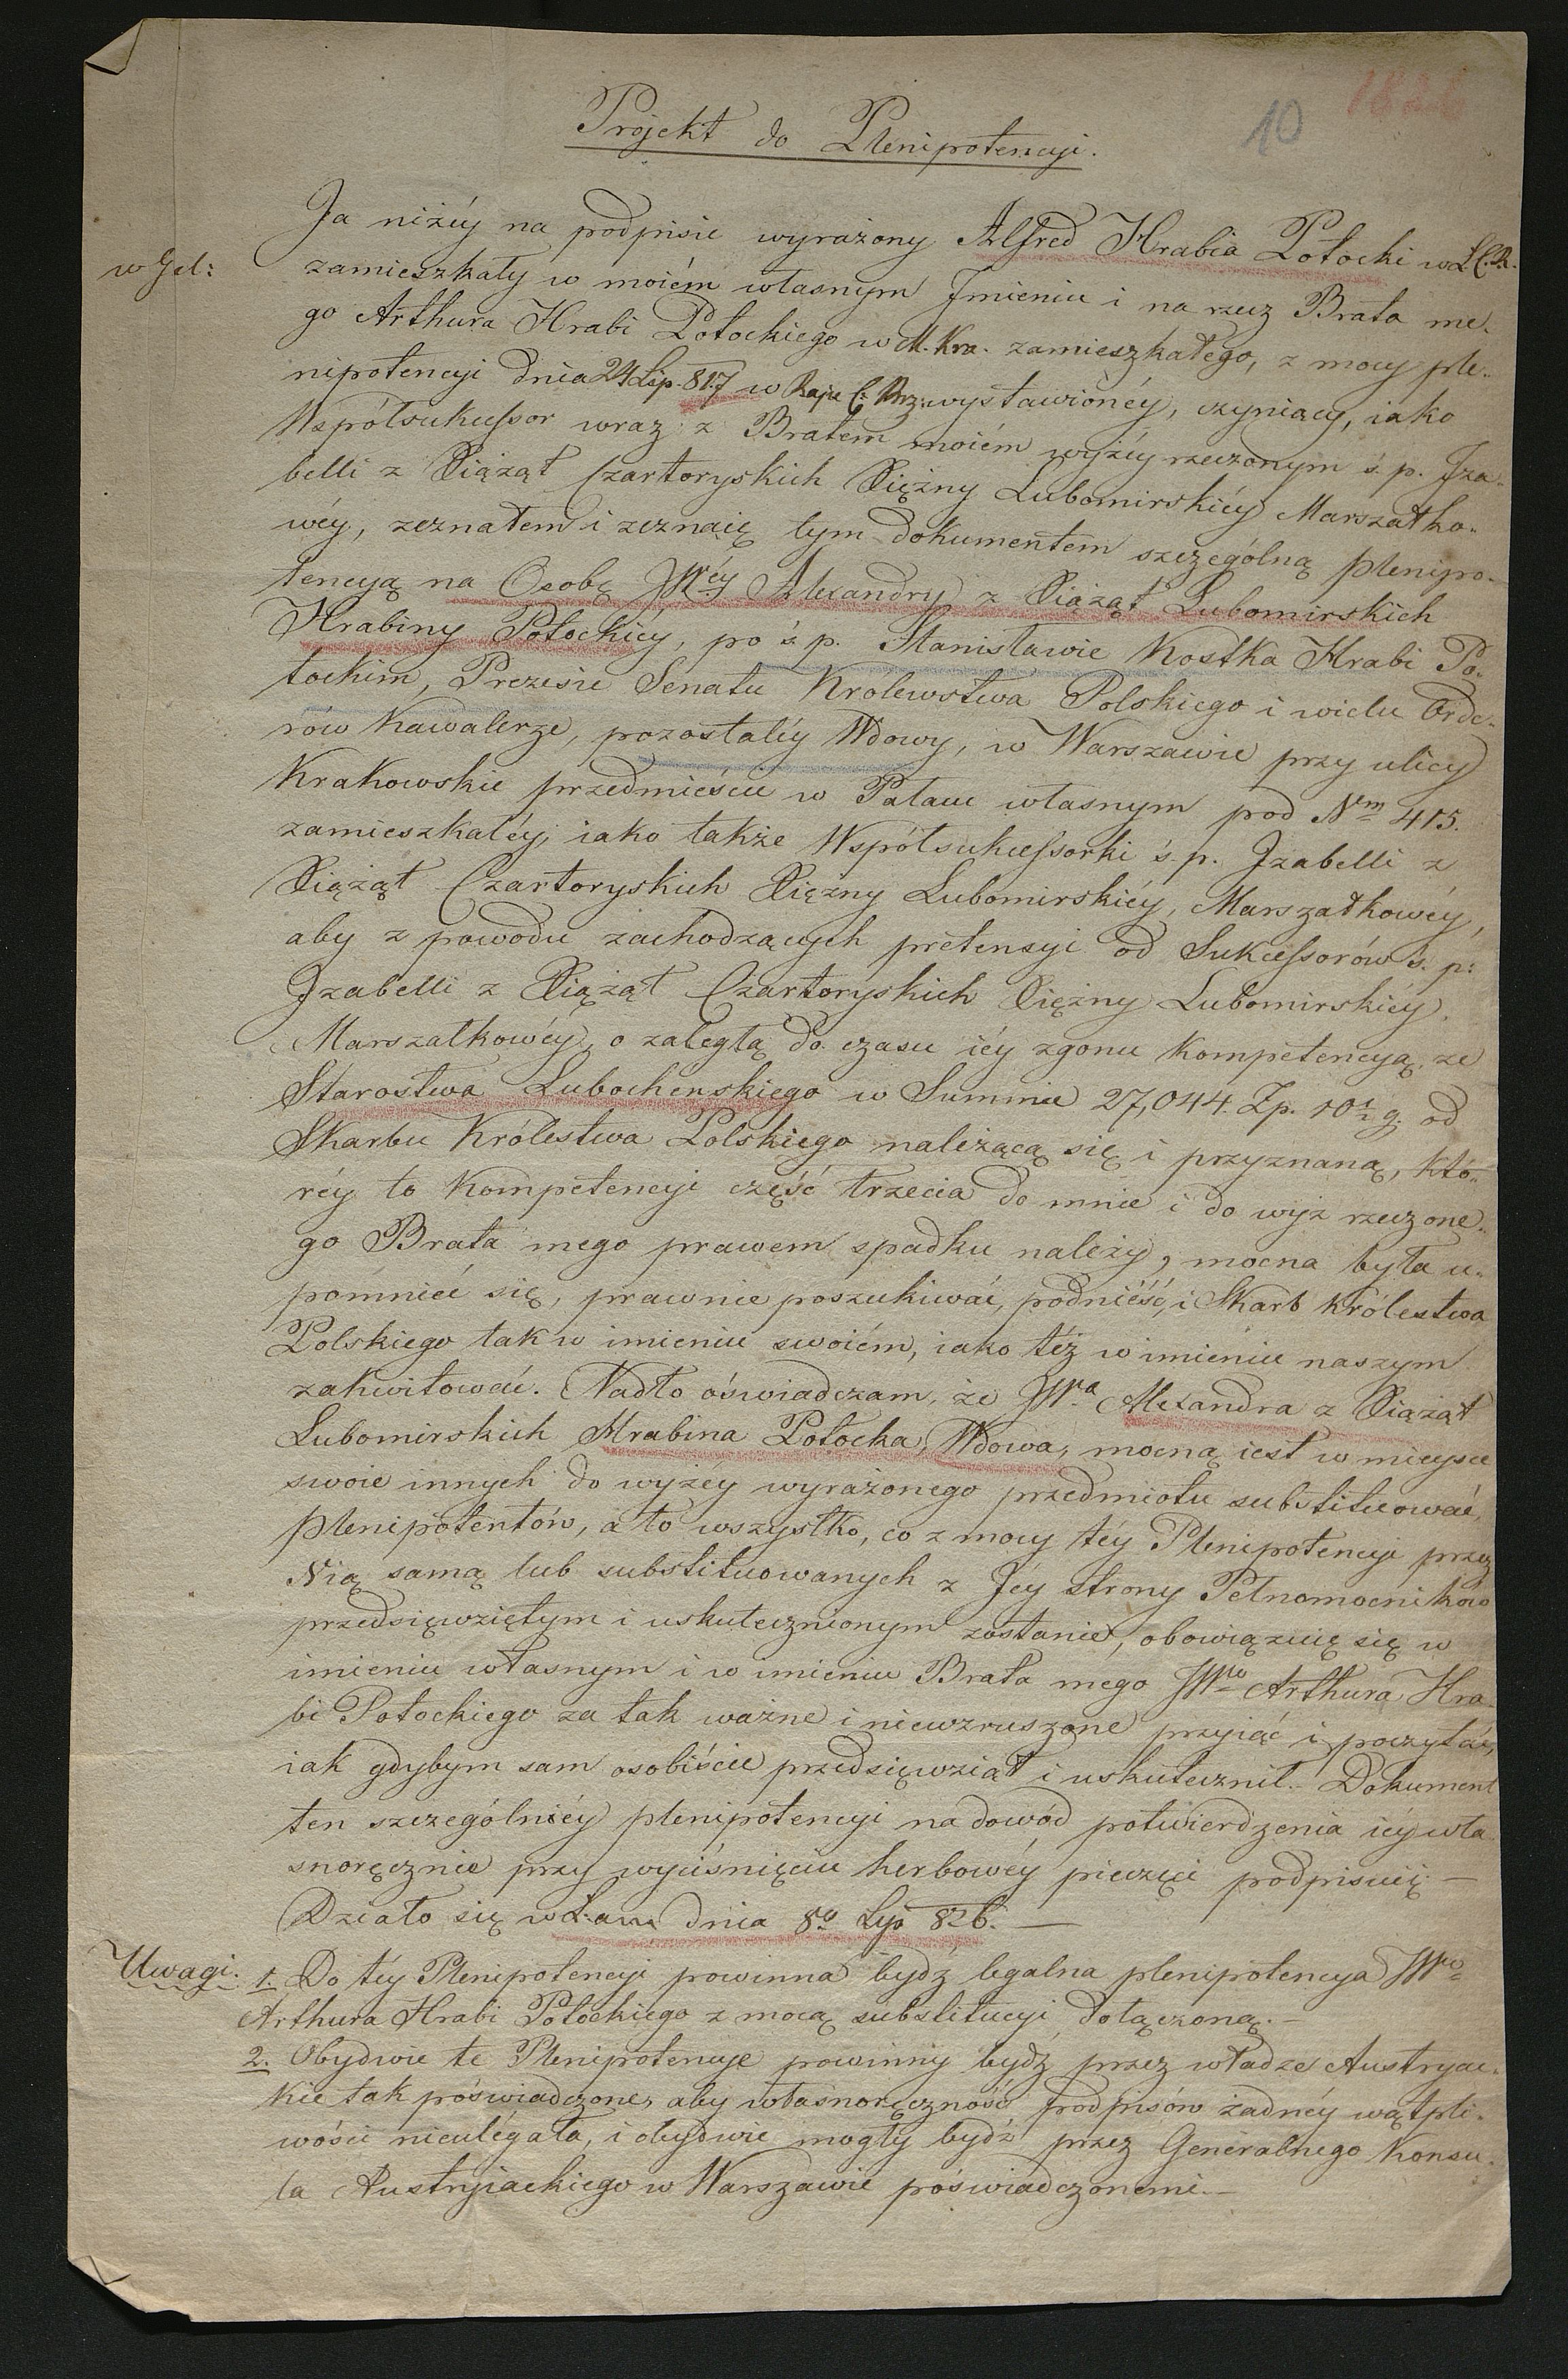 10
1826
Projekt do Plenipotencyi.
Ja niżéy na podpisie wyrażony Alfred Hrabia Potocki w
w Gal:
zamieszkały w moiém własnym Imieniu i na rzecz Brata me-
go Arthura Hrabi Potockiego w M. Kra. zamieszkałego, z mocy ple-
nipotencyi dnia 24 Lip. 817 w Raju C. Brz. wystawionéy, czyniący, iako
Wspólsukcessor wraz z Bratem moiém wyżéy rzeczonym ś. p. Iza-
belli z Xiążąt Czartoryskich Xiężny Lubomirskiéy Marszałko-
wéy, zeznałem i zeznaię tym dokumentem szczególną plenipo-
tencyą na Osobę JWéy Alexandry z Xiążąt Lubomirskich
Hrabiny Potockiéy, po ś. p. Stanisławie Kostka Hrabi Po-
tockim, Prezesie Senatu Królewstwa Polskiego i wielu Orde-
rów Kawalerze, pozostałéy Wdowy, w Warszawie przy ulicy
Krakowskie przedmieście w Pałacu własnym pod Nem 415.
zamieszkałéy, iako także Wspólsukcessorki ś. p. Izabelli z
Xiążąt Czartoryskich Xiężny Lubomirskiéy, Marszałkowéy,
aby z powodu zachodzących pretensyi od Sukcessorów ś. p:
Izabelli z Xiążąt Czartoryskich Xiężny Lubomirskiéy.
Marszałkowéy, o zaległą do czasu iéy zgonu Kompetencyą ze
Starostwa Lubocheńskiego w Summie 27,044. Zp. 10½ g. od
Skarbu Królestwa Polskiego należącą się i przyznaną, któ-
réy to Kompetencyi część trzecia do mnie i do wyż rzeczone-
go Brata mego prawem spadku należy, mocna była u-
pomnieć się, prawnie poszukiwać, podnieść, i Skarb Królestwa
Polskiego tak w imieniu swoiém, iako też w imieniu naszym
zakwitować. Nadto oświadczam, że JWa Alexandra z Xiążąt
Lubomirskich Hrabina Potocka, Wdowa, mocną iest w mieysce
swoie innych do wyżéy wyrażonego przedmiotu substituować
Plenipotentów, a to wszystko, co z mocy téy Plenipotencyi przez
Nią samą lub substituowanych z Jéy strony Pełnomocników
przedsięwziętym i uskutecznionym zostanie, obowiązuię się w
imieniu własnym i w imieniu Brata mego JWgo Arthura Hra-
bi Potockiego za tak ważne i niewzruszone przyiąć i poczytać,
iak gdybym sam osobiście przedsięwziął i uskutecznił. Dokument
ten szczególniéy plenipotencyi na dowód potwierdzenia iéy wła-
snoręcznie przy wyciśnięciu herbowéy pieczęci podpisuię. —
Działo się w Łań. dnia 8o Lip 826. —
Uwagi. 1. Do téy Plenipotencyi powinna bydz legalna plenipotencya JWgo
Arthura Hrabi Potockiego z mocą substitucyi dołączoną. —
2. Obydwie te Plenipotencye powinny bydz przez władze Austryac-
kie tak poświadczone, aby własnoręczność podpisów żadnéy wątpli-
wości nieulégała, i obydwie mogły bydź przez Generalnego Konsu-
la Austryiackiego w Warszawie poświadczonemi. —